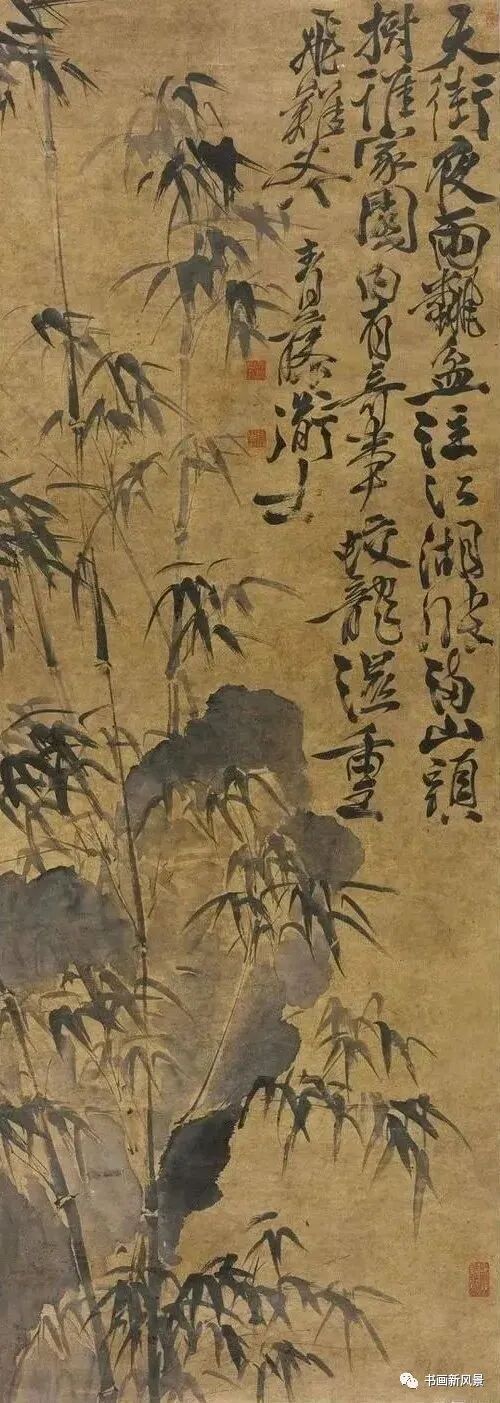 天街夜雨飜盆注江湖漲滿山頭
樹誰家園內有奇事蛟龍濕重
飛難去 青藤士
书画新风景